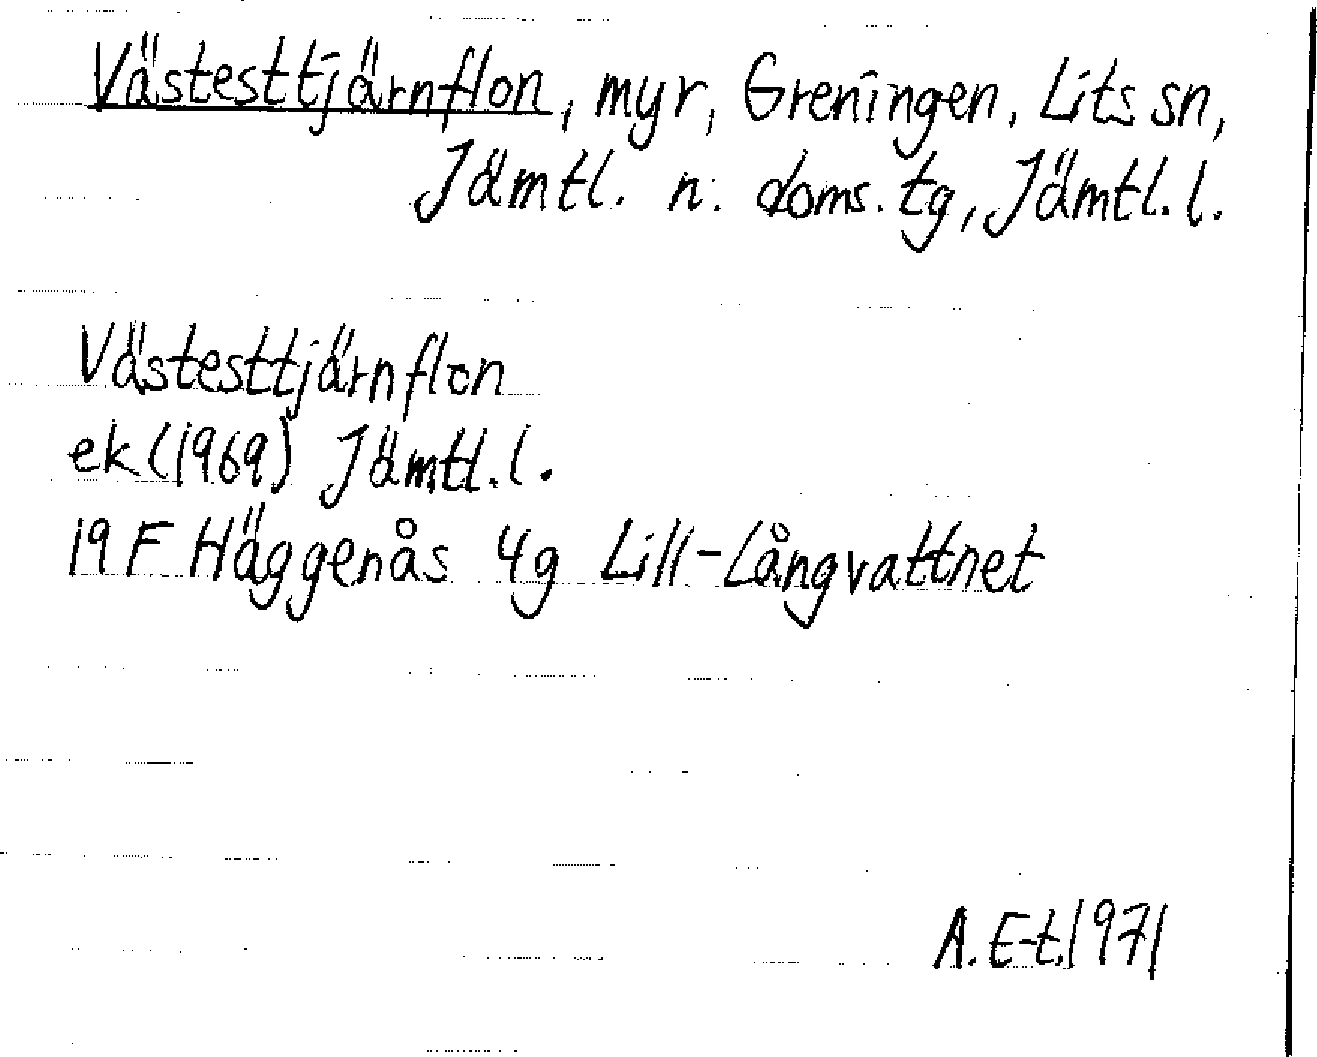 Västesttjärnflon, myr, Greningen, Lits sn,
Jämtl. n. doms. tg, Jämtl. l.
Västesttjärnflon
ek (1969) Jämtl. l.
19 F Häggenås 4g Lill-Långvattnet
A. E-t. 1971